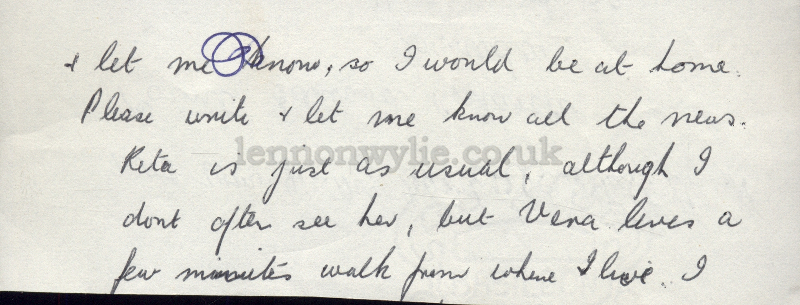 & let me know, so I would be at home.
Please write & let me know all the news.
lennonwylie.co.uk
Reta is just as usual, although I
dont often see her, but Vera lives a
few minutes walk from where I live. I